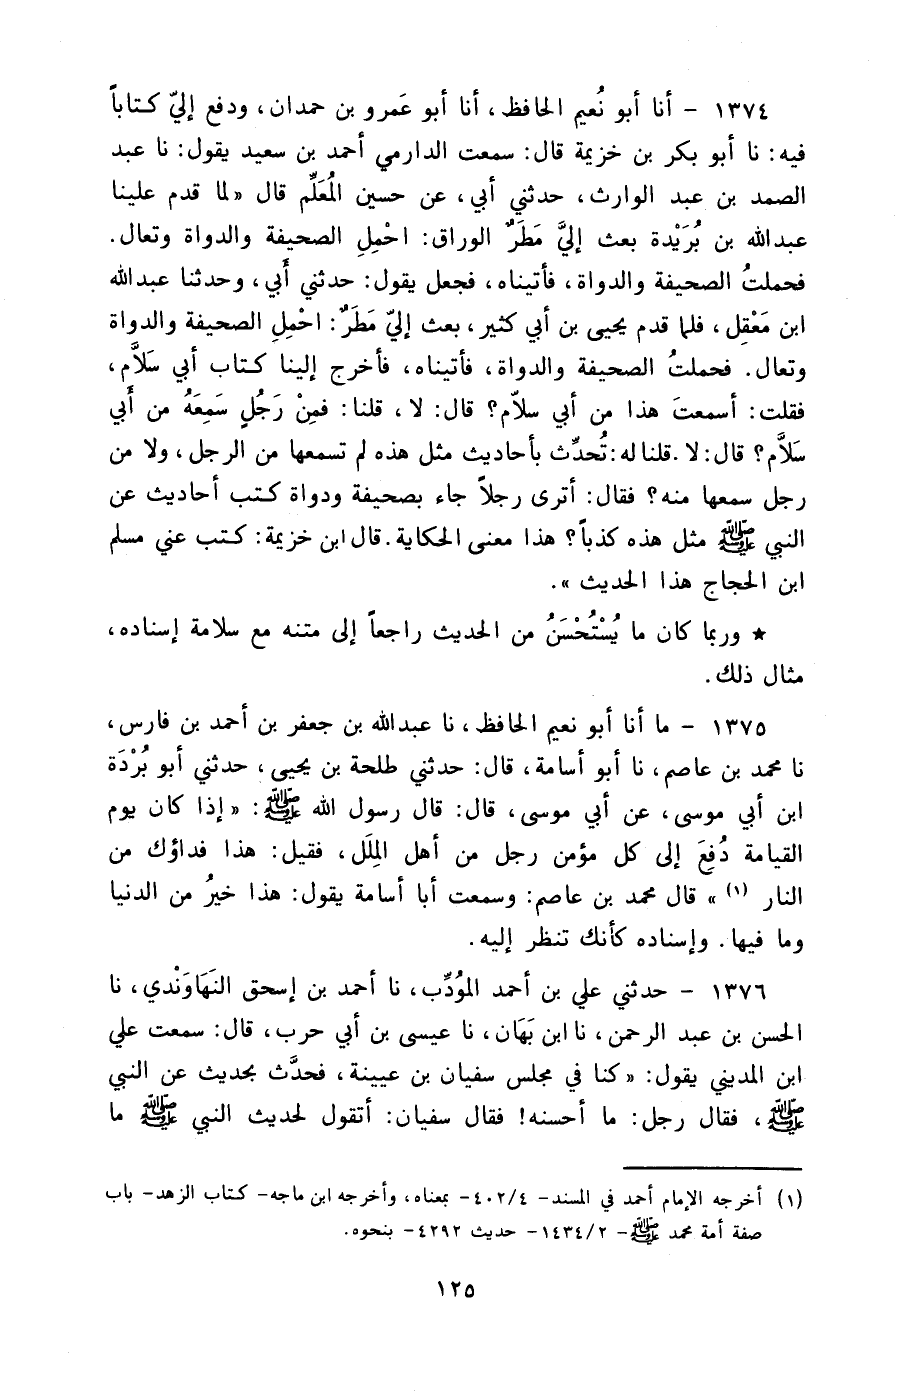 ١٣٧٤ - أنا أبو نُعيم الحافظ، أنا أبو عَمرو بن حمدان، ودفع إليّ كتاباً
فيه: نا أبو بكر بن خزيمة قال: سمعت الدارمي أحمد بن سعيد يقول: نا عبد
الصمد بن عبد الوارث، حدثني أبي، عن حسين المُعَلِّم قال «لما قدم علينا
عبدالله بن بُرَيْدة بعث إليَّ مَطَرٌ الوراق: احْمِلِ الصحيفة والدواة وتعال.
فحملتُ الصحيفة والدواة، فأتيناه، فجعل يقول: حدثني أَبي، وحدثنا عبدالله
ابن مَعْقِل، فلما قدم يحيى بن أبي كثير، بعث إليّ مَطَرٌ: احْمِلِ الصحيفة والدواة
وتعال. فحملتُ الصحيفة والدواة، فأتيناه، فأخرج إلينا كتاب أبي سَلاَّم،
فقلت: أسمعتَ هذا من أبي سلاّم؟ قال: لا، قلنا: فمِنْ رَجُلٍ سَمِعَهُ من أَبي
سَلاَّم؟ قال: لا. قلنا له: تُحدِّث بأحاديث مثل هذه لم تسمعها من الرجل، ولا من
رجل سمعها منه؟ فقال: أترى رجلاً جاء بصحيفة ودواة كتب أحاديث عن
النبي ﷺ مثل هذه كذباً؟ هذا معنى الحكاية. قال ابن خزيمة: كتب عني مسلم
ابن الحجاج هذا الحديث».
★ وربما كان ما يُسْتُحْسَنُ من الحديث راجعاً إلى متنه مع سلامة إسناده،
مثال ذلك.
١٣٧٥ - ما أنا أبو نعيم الحافظ، نا عبدالله بن جعفر بن أحمد بن فارس،
نا محمد بن عاصم، نا أبو أسامة، قال: حدثني طلحة بن يحيى، حدثني أبو بُرْدَة
ابن أبي موسى، عن أبي موسى، قال: قال رسول الله ﷺ: «إذا كان يوم
القيامة دُفِعَ إلى كل مؤمن رجل من أهل المِلَل، فقيل: هذا فداؤك من
النار (١)» قال محمد بن عاصم: وسمعت أبا أسامة يقول: هذا خيرُ من الدنيا
وما فيها. وإسناده كأنك تنظر إليه.
١٣٧٦ - حدثني علي بن أحمد المؤدِّب، نا أحمد بن إسحق النهَاوَنْدي، نا
الحسن بن عبد الرحمن، نا ابن بَهَان، نا عيسى بن أبي حرب، قال: سمعت علي
ابن المديني يقول: «كنا في مجلس سفيان بن عيينة، فحدَّث بحديث عن النبي
ﷺ، فقال رجل: ما أحسنه! فقال سفيان: أتقول لحديث النبي ﷺ ما
(١) أخرجه الإمام أحمد في المسند- ٤٠٢/٤- بمعناه، وأخرجه ابن ماجه- كتاب الزهد- باب
صفة أمة محمد ﷺ- ١٤٣٤/٢- حديث ٤٢٩٢- بنحوه.
١٢٥